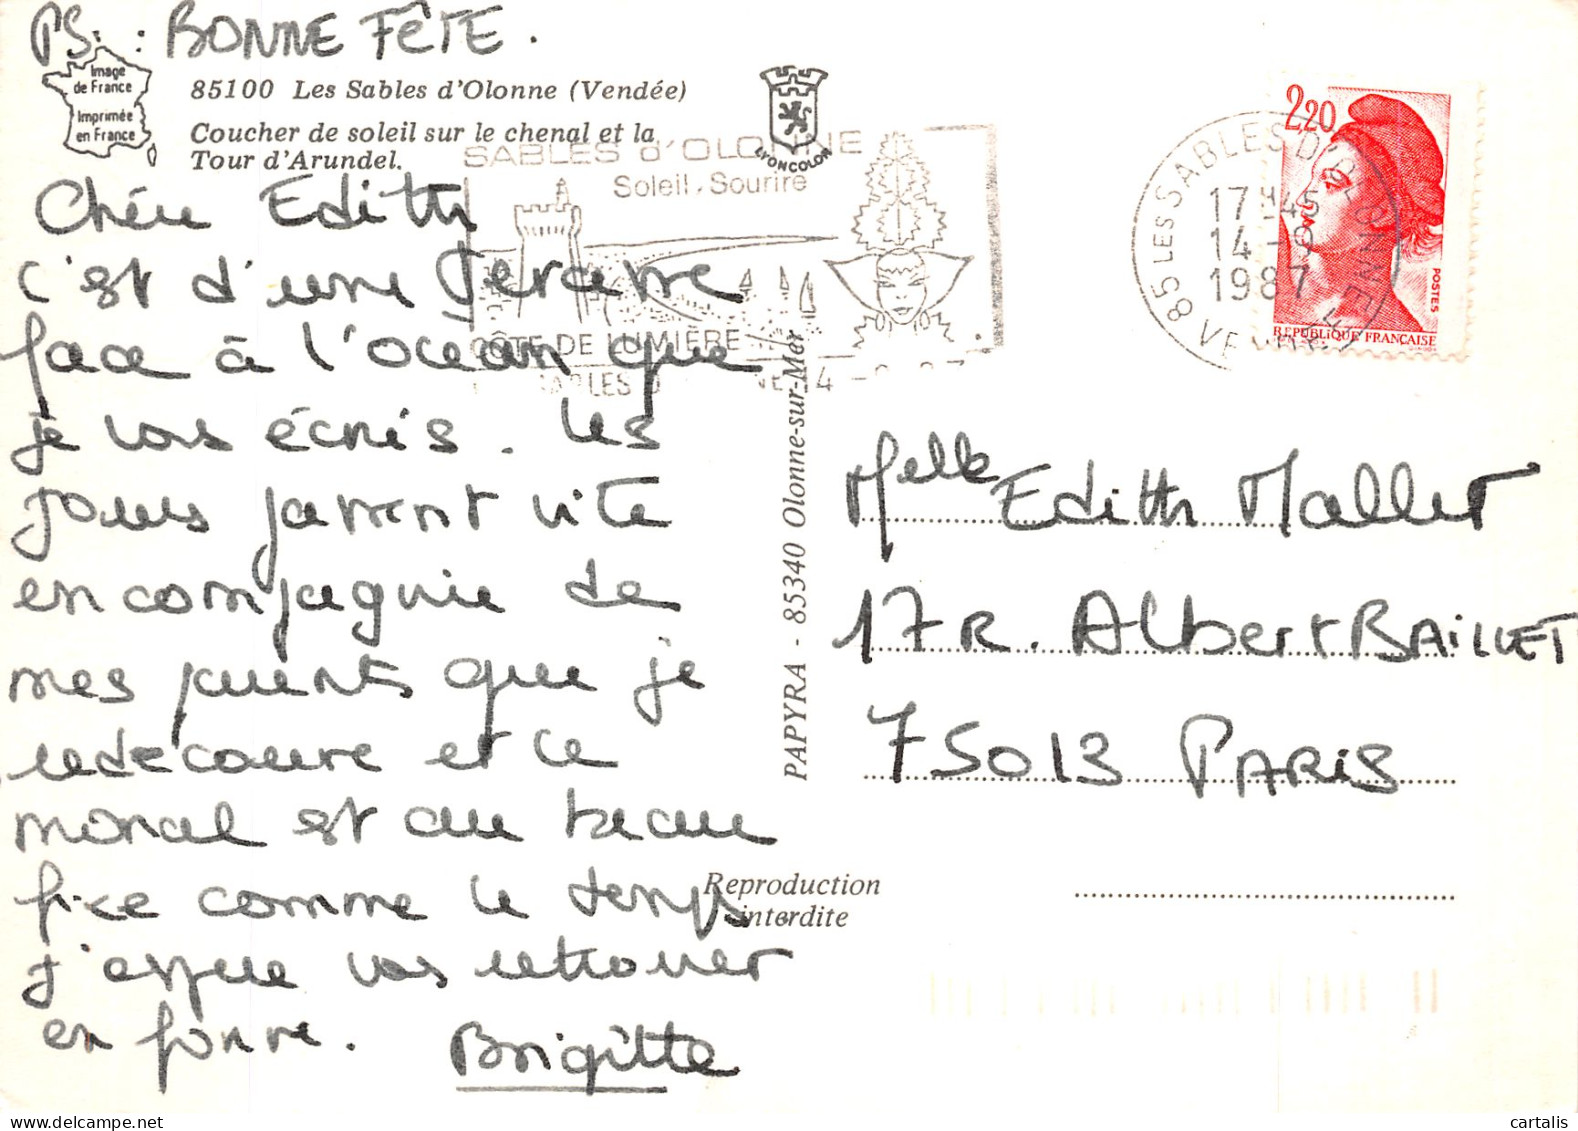 PS: : BONNE FÊTE.
Image
de France
Imprimée
en France
85100 Les Sables d'Olonne (Vendée)
Coucher de soleil sur le chenal et la
Tour d'Arundel.
LYONCOLOR
SABLES d'OLONNE
Soleil. Sourire
CÔTE DE LUMIÈRE
85 LES SABLES D'OLONNE
17H45
14-9
1987
2,20
POSTES
REPUBLIQUE FRANCAISE
Chère Edith
c'est d'une terasse
face à l'ocean que
je vous écris. Les
jours passent vite
en compagnie de
mes parents que je
redécouvre et le
moral est au beau
fixe comme le temps
j'espere vous retrouver
en forme.
Brigitte
PAPYRA - 85340 Olonne-sur-Mer
Reproduction
interdite
Melle Edith Mallet
17 R. Albert BAILLET
75013 PARIS
cartalis.com